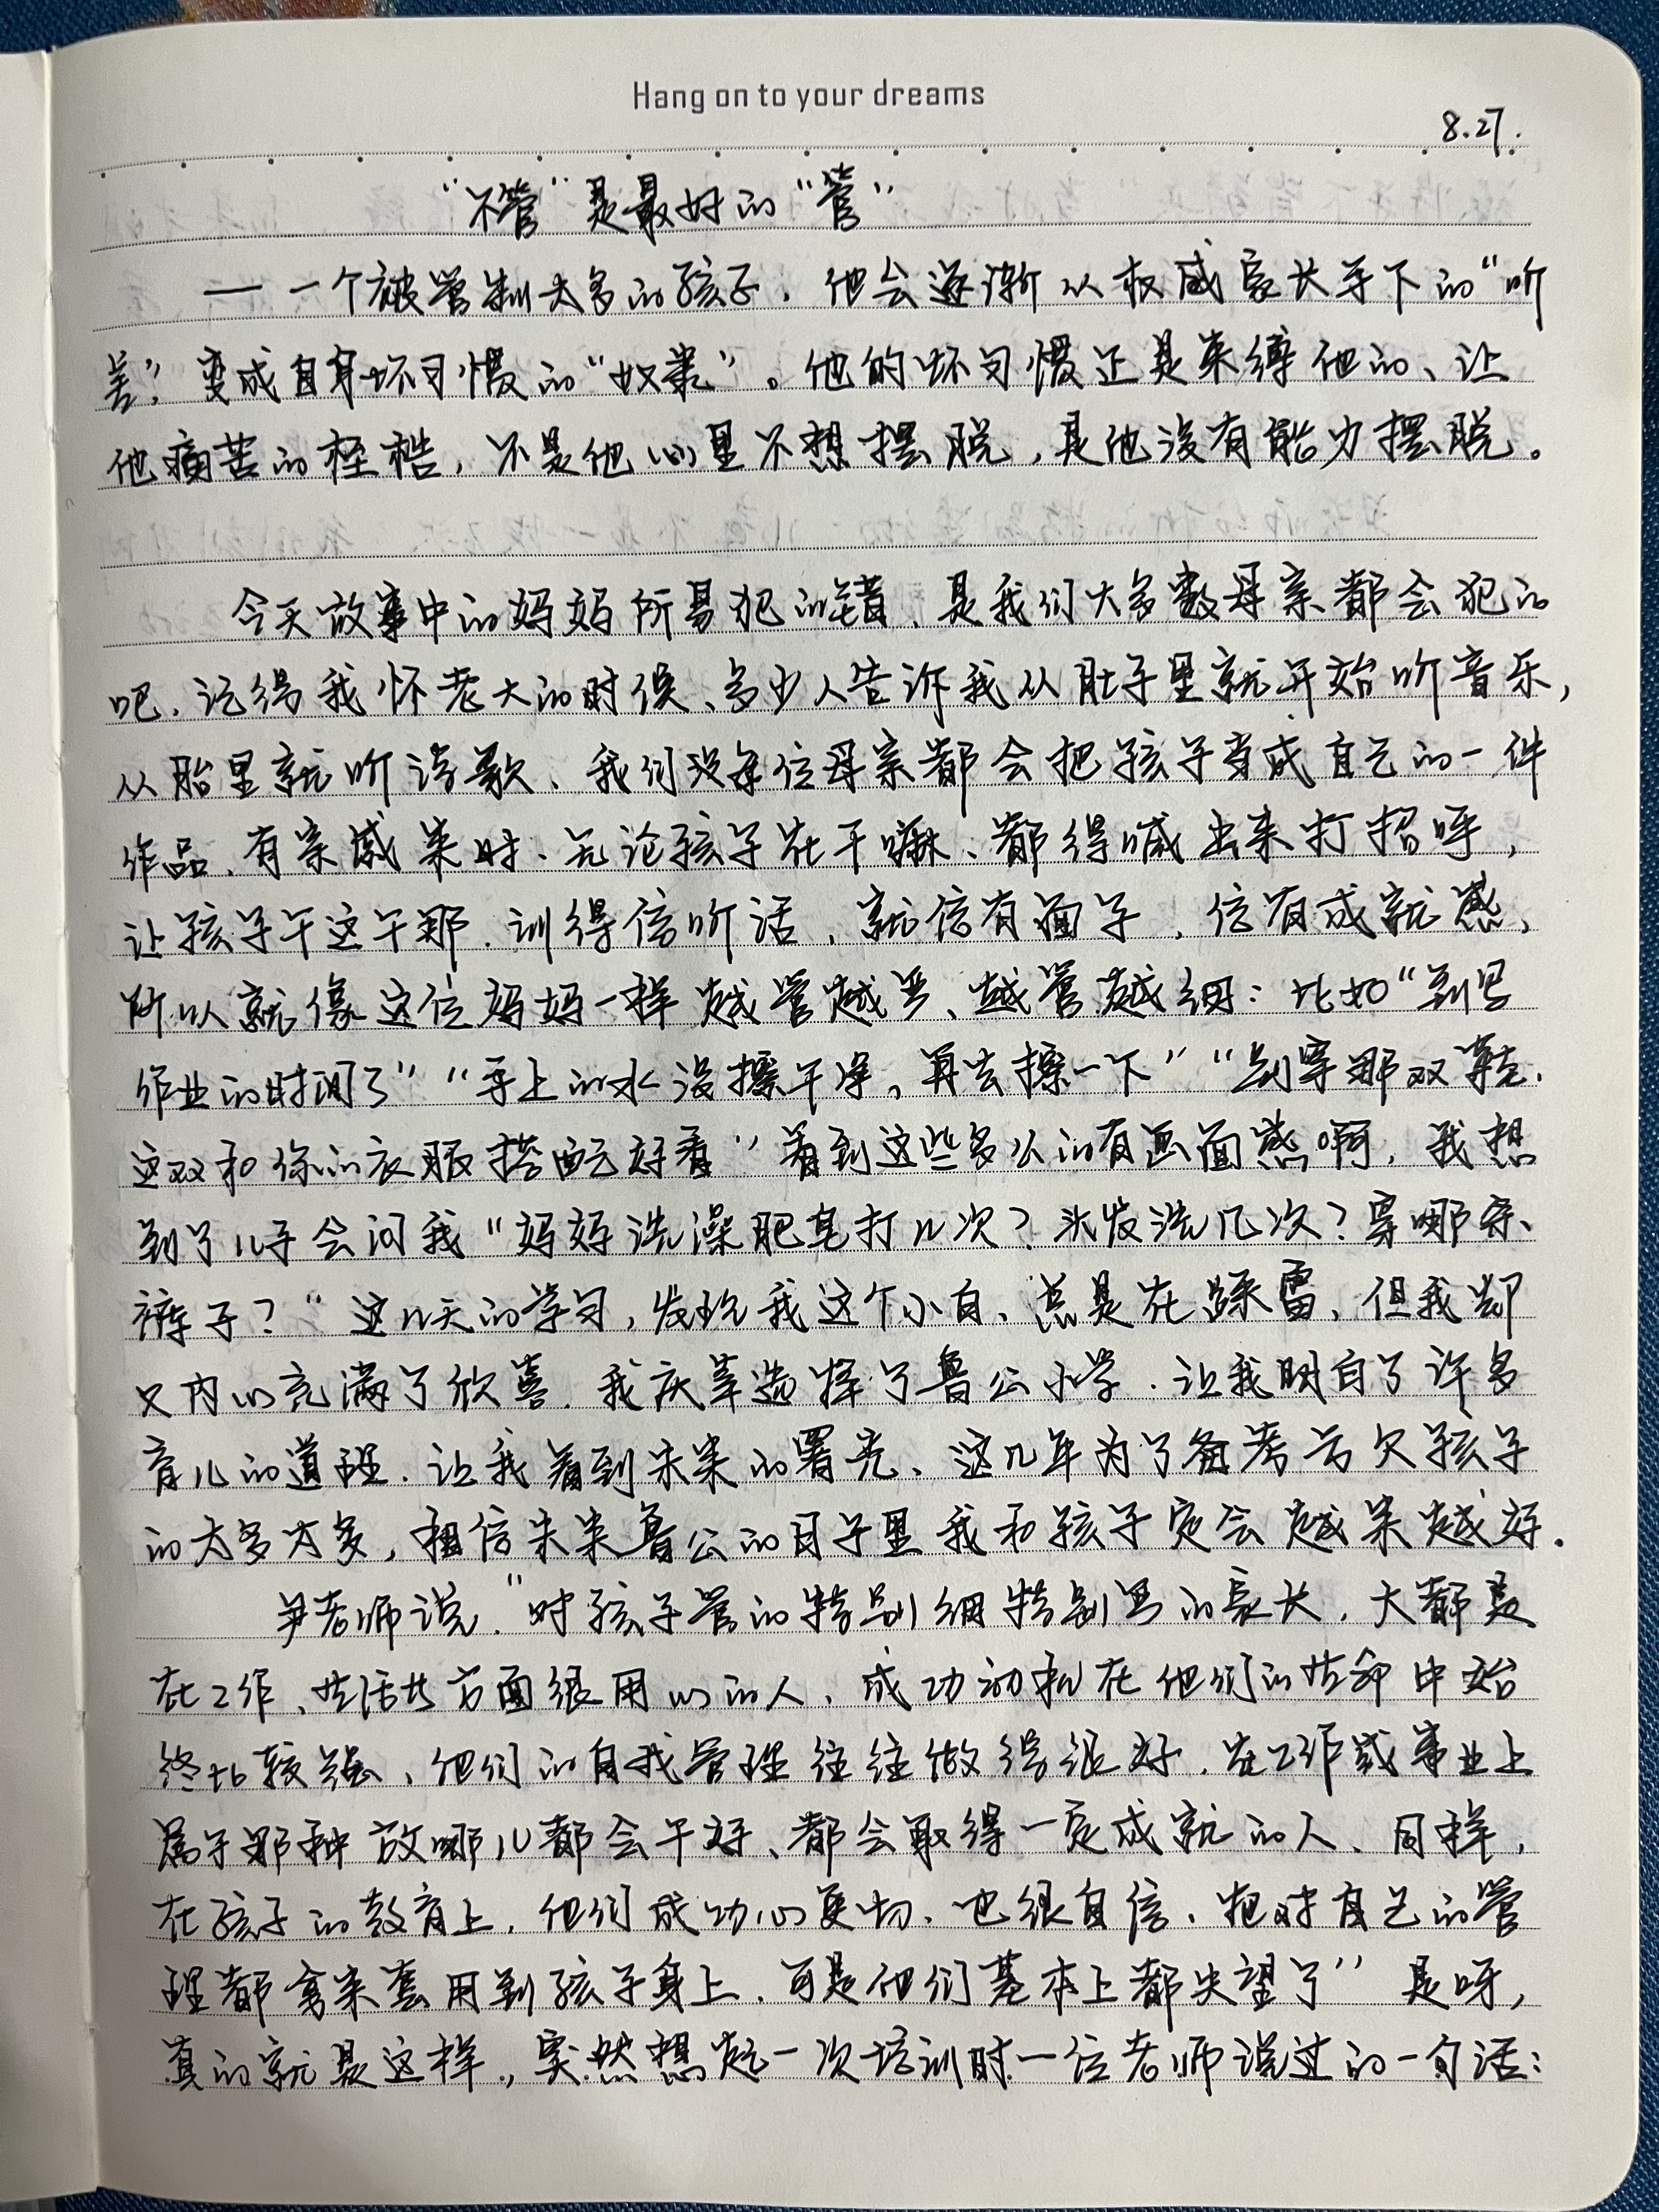 Hang on to your dreams
8.27.
“不管”是最好的“管”
— 一个被管制太多的孩子，他会逐渐从权威家长手下的“听
差”，变成自身坏习惯的“奴隶”。他的坏习惯正是束缚他的、让
他痛苦的桎梏，不是他心里不想摆脱，是他没有能力摆脱。
今天故事中的妈妈所易犯的错、是我们大多数母亲都会犯的
吧．记得我怀老大的时候、多少人告诉我从肚子里就开始听音乐，
从胎里就听诗歌、我们没每位母亲都会把孩子当成自己的一件
作品、有亲戚来时、无论孩子在干嘛、都得喊出来打招呼，
让孩子干这干那．训得倍听话，就倍有面子，倍有成就感，
所以就像这位妈妈一样越管越严、越管越细：比如“到写
作业的时间了”“手上的水没擦干净，再去擦一下”“别穿那双鞋．
这双和你的衣服搭配好看”看到这些多么的有画面感啊，我想
到了儿子会问我“妈妈洗澡肥皂打几次？头发洗几次？穿哪条
裤子？”这几天的学习，发现我这个小白、总是在踩雷，但我却
又内心充满了欣喜．我庆幸选择了鲁公小学．让我明白了许多
育儿的道理．让我看到未来的署光、这几年为了备考亏欠孩子
的太多太多，相信未来鲁公的日子里我和孩子定会越来越好．
尹老师说．“对孩子管的特别细特别严的家长，大都是
在工作、生活等方面很用心的人、成功动机在他们的生命中始
终比较强、他们的自我管理往往做得很好．在工作或事业上
属于那种放哪儿都会干好、都会取得一定成就的人、同样，
在孩子的教育上．他们成功心更切、也很自信、把对自己的管
理都拿来套用到孩子身上．可是他们基本上都失望了”是呀，
真的就是这样，突然想起一次培训时一位老师说过的一句话：